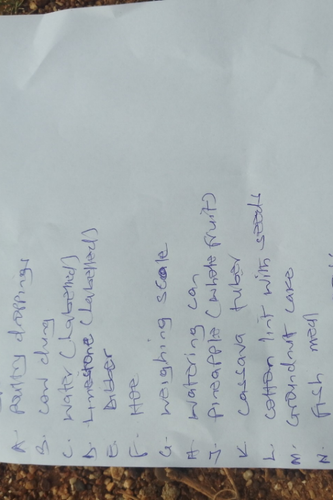 A. Poultry droppings
B. Cow dung
C. Water (Labelled)
D. Limestone (Labelled)
E. Dibber
F. Hoe
G. Weighing scale
H. Watering can
J. Pineapple (whole fruit)
K. Cassava tuber
L. Cotton lint with seeds
M. Groundnut cake
N. Fish meal